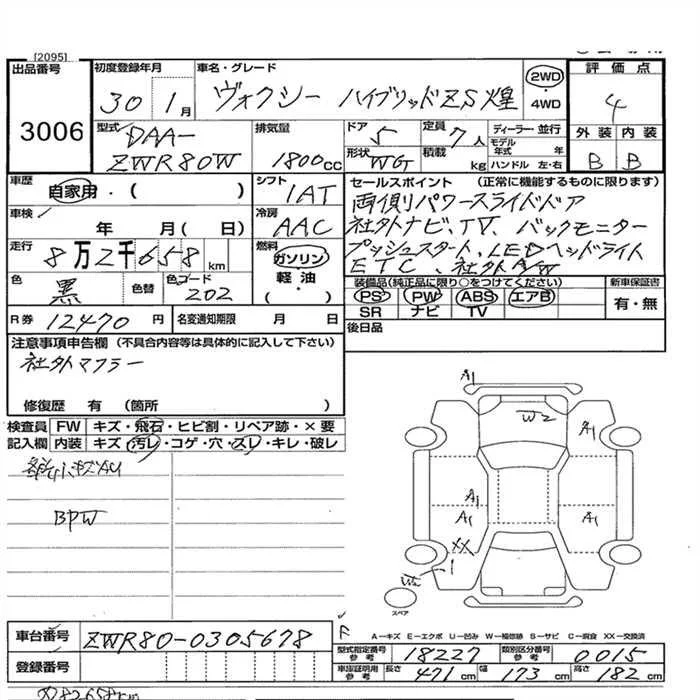 [2095]
出品番号
3006
初度登録年月
30 1月
車名・グレード
ヴォクシー ハイブリッドZS煌
2WD
・4WD
評価点
4
外装 内装
B B
型式
DAA-
ZWR80W
排気量
1800cc
ドア
5
形状
WG
定員
7人
積載
kg
ディーラー・並行
モデル年式 年
ハンドル 左・右
車歴
自家用・( )
シフト
1AT
車検
年 月( 日)
冷房
AAC
走行
8万2千658km
燃料
ガソリン
軽油・
( )
色
黒
色替
色コード
202
R券 12470円
名変通知期限 月 日
セールスポイント (正常に機能するものに限ります)
両側パワースライドドア
社外ナビ、TV、バックモニター
プッシュスタート、LEDヘッドライト
ETC、社外A/W
装備品(純正品に限り○をつけてください)
PS PW ABS エアB
SR ナビ TV
新車保証書
有・無
後日品
注意事項申告欄 (不具合内容等は具体的に記入して下さい)
社外マフラー
修復歴 有 (箇所 )
検査員 FW キズ・飛石・ヒビ割・リペア跡・×要
記入欄 内装 キズ・汚レ・コゲ・穴・スレ・キレ・破レ
BPW
A1
W2
A1
A1
A1
A1
XX
1
スペア
F
A—キズ E—エクボ U—凹み W—補修跡 S—サビ C—腐食 XX—交換済
車台番号 ZWR80-0305678
登録番号
型式指定番号 参考 18227
類別区分番号 参考 0015
車庫証明用 参考 長さ 471cm 幅 173cm 高さ 182cm